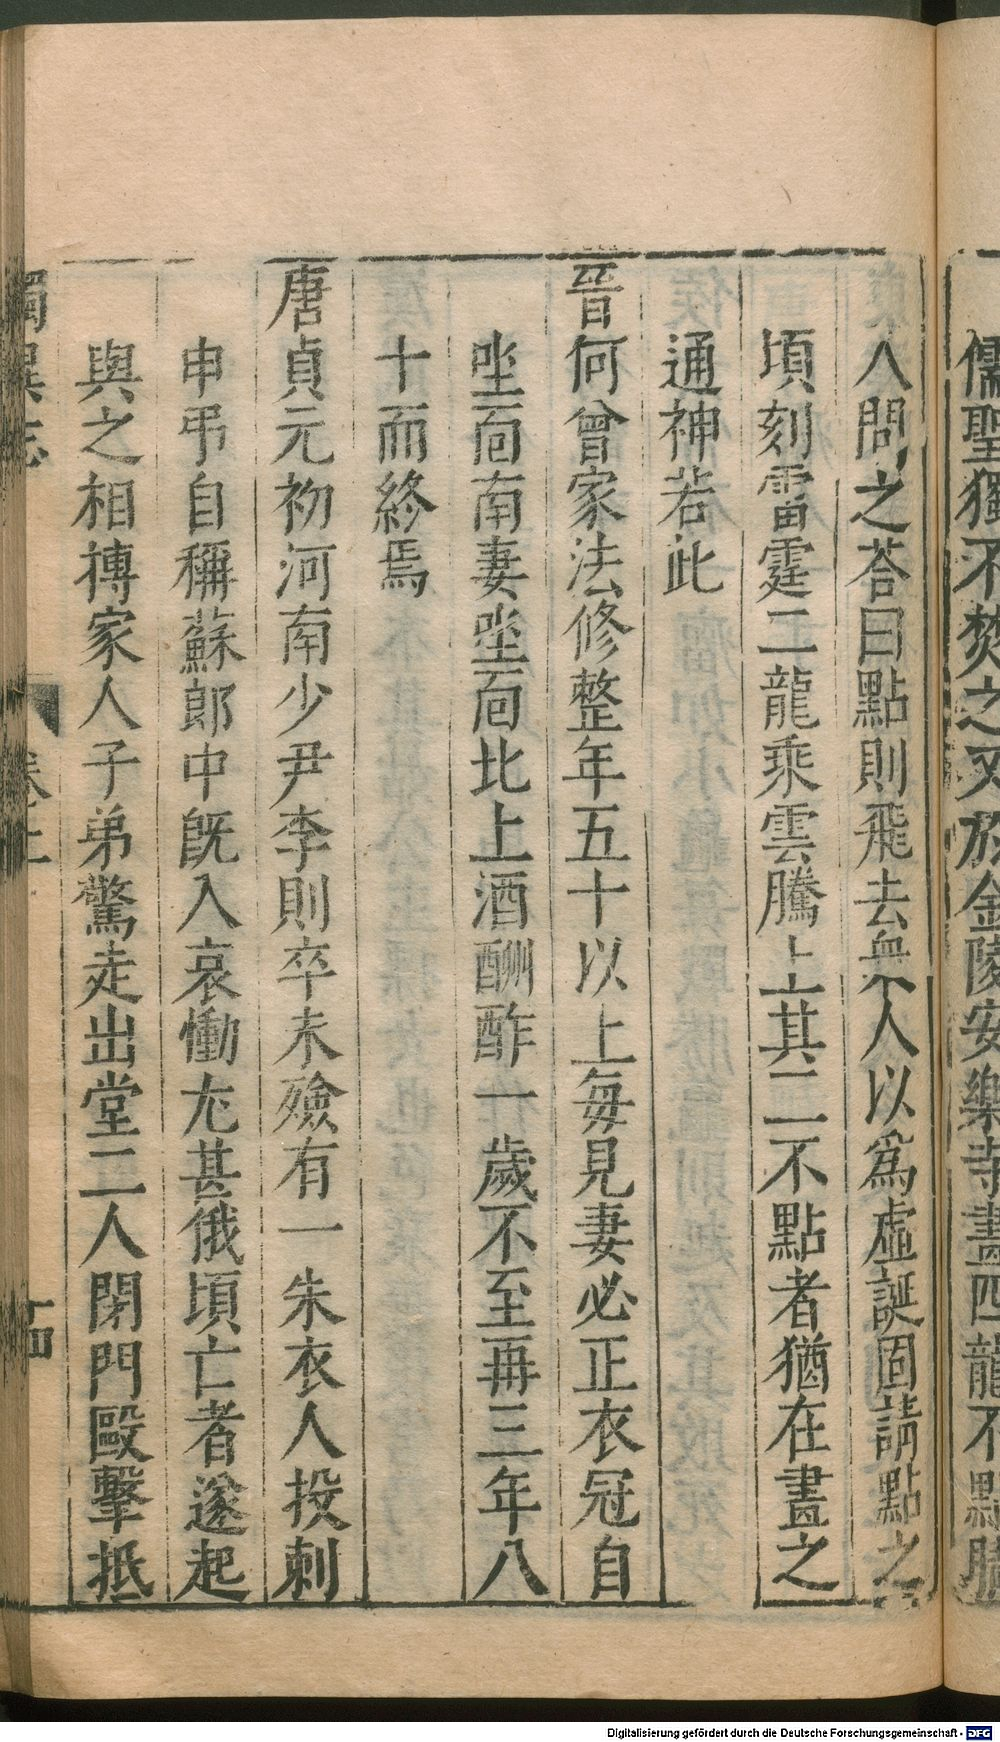 儒聖獨不焚之又於金陵安樂寺畫四龍不點
人問之荅曰點則飛去無人以爲虛誕固請點之
頃刻雷霆二龍乘雲騰上其二不點者猶在畫之
通神若此
晉何曾家法修整年五十以上每見妻必正衣冠自
坐面南妻坐面北上酒酬酢一歲不至再三年八
十而終焉
唐貞元初河南少尹李則卒未殮有一朱衣人投刺
申弔自稱蘇郎中旣入哀慟尤甚俄頃亡者遂起
與之相搏家人子弟驚走出堂二人閉門毆擊抵
獨異志
卷上
十四
Digitalisierung gefördert durch die Deutsche Forschungsgemeinschaft - DFG